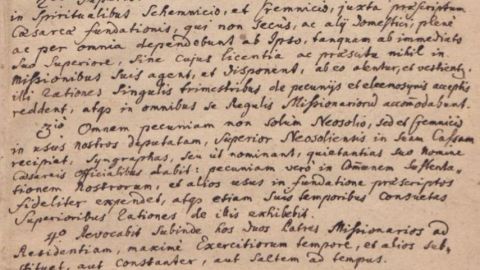 in Spiritualibus Schemnicio, et Cremnicio, juxta præscriptum
Cæsareæ fundationis, qui non secus, ac alij Domestici, plene
ac per omnia dependebunt ab Ipso, tanquam ab immediato
suo Superiore, sine cujus licentia ac præscitu nihil in
Missionibus suis agent, et disponent, ab eo alentur, et vestientur,
illi rationes singulis trimestribus de pecunijs et eleemosynis acceptis
reddent, atqs in omnibus se Regulis Missionariorũ accomodabunt.
3tiò Omnem pecuniam non solùm Neosolio, sed et Cremnicio
in usus nostros deputatam, Superior Neosoliensis in suam Cassam
recipiat, Syngraphas, seu ut nominant, quietantias suo nomine
Cæsareis Officialibus dabit: pecuniam verò in Cõmunem sustenta-
tionem Nostrorum, et alios usus in fundatione præscriptos
fideliter expendet, atqs etiam suis temporibus consuetas
Superioribus rationes de ijs exhibebit.
4tò Revocabit subinde hos duos Patres Missionarios ad
Residentiam, maxime Exercitiorum tempore, et alios sub-
stituet, aut constanter, aut saltem ad tempus.